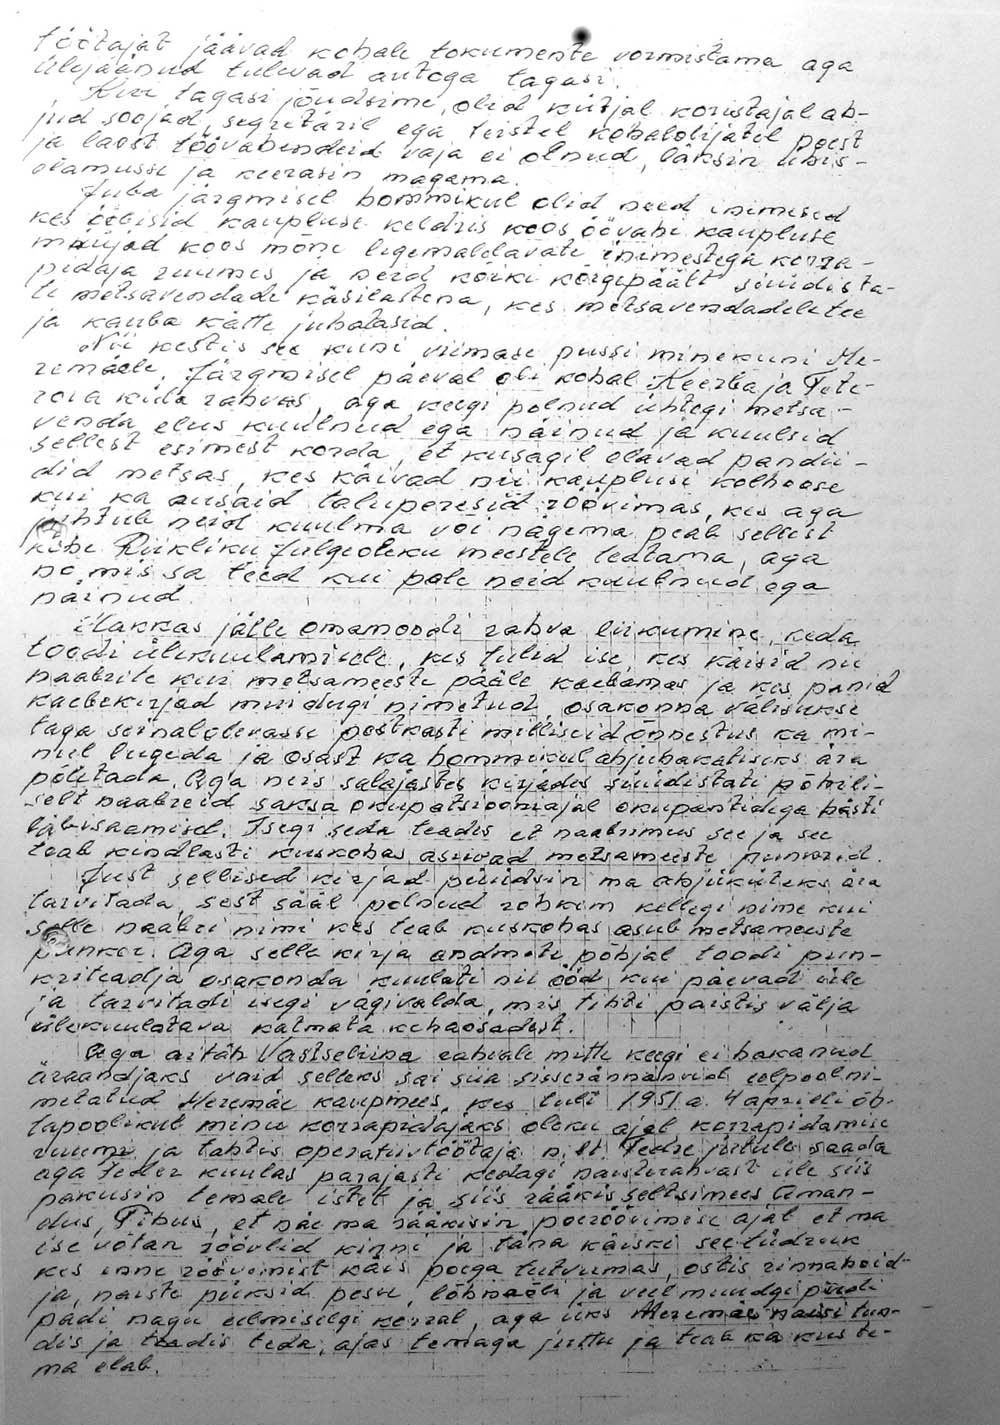 töötajat jäävad kohale tokumente vormistama aga
ülejäänud tulevad autoga tagasi.
Kui tagasi jõudsime, olid kütjal koristajal ah-
jud soojad, segretäril ega teistel kohalolijatel poest
ja laost töövahendeid vaja ei olnud, läksin ühis-
elamusse ja keerasin magama.
Juba järgmisel hommikul olid need inimesed
kes ööbisid kaupluse keldris koos öövahi kaupluse
müüjad koos mõne ligemaldavate inimestega korra-
pidaja ruumis ja neid kõiki kõrgipäält süüdista-
ti metsavendade käsilastena, kes metsavendadele tee
ja kauba kätte juhatasid.
Nii kestis see kuni viimase pussi minekuni Me-
remäele. Järgmisel päeval oli kohal Keerba ja Tete-
rova küla rahvas, aga keegi polnud ühtegi metsa-
venda elus kuulnud ega näinud ja kuulsid
sellest esimest korda, et kusagil elavad pandii-
did metsas, kes käivad nii kauplusi kolhoose
kui ka ausaid taluperesid röövimas, kes aga
juhtub neid kuulma või nägema peab sellest
kohe Riikliku Julgeoleku meestele teatama, aga
no mis sa teed kui pole need kuulnud ega
näinud.
Hakkas jälle omamoodi rahva liikumine, keda
toodi ülekuulamisele, kes tulid ise, kes käisid nii
naabrite kui metsameeste pääle kaebamas ja kes panid
kaebekirjad muidugi nimetud, osakonna välisukse
taga seinalolevasse postkasti milliseid õnnestus ka mi-
nul lugeda ja osast ka hommikul ahjuhakatiseks ära
põletada. Aga neis salajastes kirjades süüdistati põhili-
selt naabreid saksa okupatsiooniajal okupantidega hästi
läbisaamisel. Isegi seda teades et naabrimees see ja see
teab kindlasti kuskohas asuvad metsameeste punkrid.
Just sellised kirjad püüdsin ma ahjukütteks ära
tarvitada, sest sääl polnud rohkem kellegi nime kui
selle naabri nimi kes teab kuskohas asub metsameeste
punker. Aga selle kirja andmete põhjal toodi pun-
kriteadja osakonda kuulati nii ööd kui päevad üle
ja tarvitadi isegi vägivalda, mis tihti paistis välja
ülekuulatava katmata kehaosadest.
Aga aitäh Vastseliina rahvale mitte keegi ei hakanud
äraandjaks vaid selleks sai siia sisserännanud eelpoolni-
metatud Meremäe kaupmees, kes tuli 1951 a. 4 aprilli õh-
tapoolikul minu korrapidajaks oleku ajal korrapidamise
ruumi ja tahtis operatiivtöötaja n. lt. Tedre jutule saada
aga Teder kuulas parajasti kedagi naisterahvast üle siis
pakusin temale istet ja siis rääkis seltsimees Aman-
dus, Pihus, et näe ma rääkisin poeröövimise ajal et ma
ise võtan röövlid kinni ja täna käiski see tüdruk
kes enne röövimist käis poega tutvumas, ostis rinnahoid-
ja, naiste püksid pesu, lõhnaõli ja veel muudgi püridi
padi nagu eelmiselgi korral, aga üks Meremäe naisi tun-
dis ja teadis teda, ajas temaga juttu ja teab ka kus te-
ma elab.